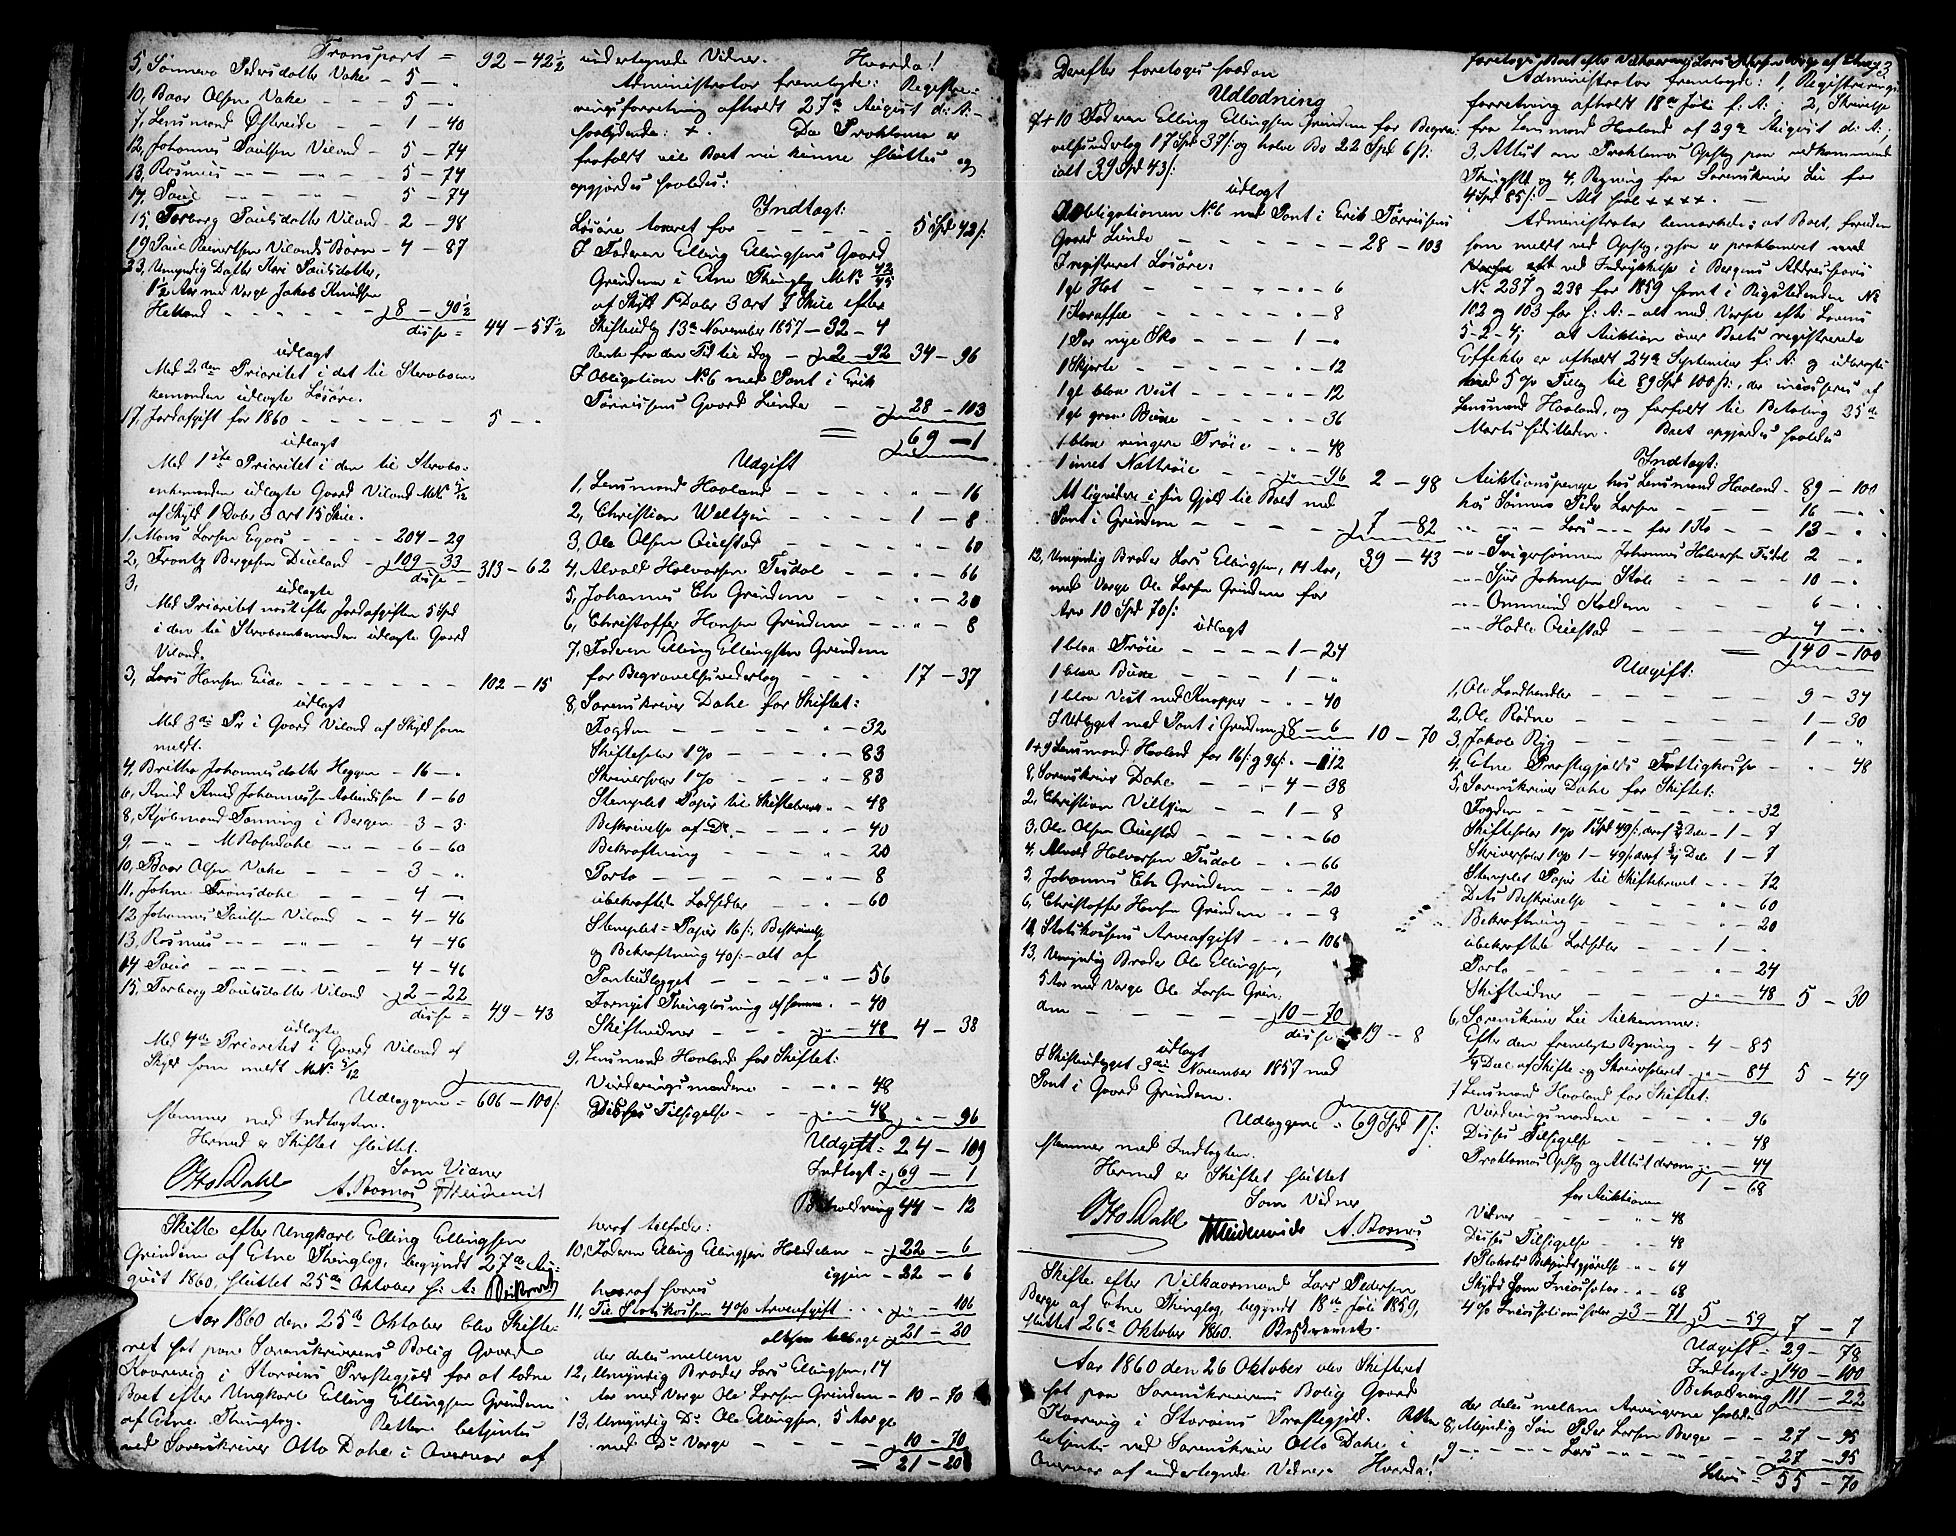 Transport = 92 - 42½
5, Sønneva Pedersdatter Vake - 5 - "
10, Baar Olsen Vake - - - 5 - "
7, Lensmand Østreide - - 1 - 40
12, Johannes Paulsen Viland - 5 - 74
13, Rasmus - - " - 5 - 74
14, Paul - - " - 5 - 74
15, Torborg Paulsdatter Viland - 2 - 98
19, Paul Reinertsen Vilands Børn - 4 - 87
23, Umyndig Datter Kari Paulsdatter,
1½ Aar med Verge Jakob Knudsen
Hetland - - - - - 8 - 90½
disse = 44 - 57½
udlagt
Med 2den Prioritet i det til Stervboen-
kemanden udlagte Løsøre.
17, Jordafgift for 1860 - - - - - 5 - "
udlagt
Med 1ste Prioritet i den til Stervbo-
enkemanden udlagte Gaard Viland
af Skyld 1 Daler 3 ort 15 Skill.
1, Mons Larsen - - - - 204 - 29
2, Bergesen - 109 - 33
disse = 313 - 62
3, udlagte
Med Prioritet næst efter Jordafgiften 5 Spd
i den til Stervboenkemanden udlagte Gaard
Viland.
3, Lars Hansen Eide - - - - - 102 - 15
udlagt
Med 3die Pr i Gaard Viland af Skyld som
meldt.
4, Britha Johannesdatter Heggen - 16 - "
6, Knud Johannessen - 1 - 60
8, Kjøbmand Fanning i Bergen - 3 - 3
9, - " - M Rosendahl - " - 6 - 60
10, Baar Olsen Vake - - - 3 - "
11, John Frønsdahl - - - 4 - "
12, Johannes Paulsen Viland - - 4 - 46
13, Rasmus - " - 4 - 46
14, Paul - - " - 4 - 46
15, Torborg Paulsdatter Viland - 2 - 22
disse = 49 - 43
udlagte
Med 4de Prioritet i Gaard Viland af
Skyld som meldt
Udlæggene = 606 - 100/:
stemmer med Indtægten.
Hermed er Skiftet sluttet.
Som Vidner
Otto Dahl A. Rosnes
Skifte efter Ungkarl Elling Ellingsen
Grindem af Etne Thinglag, begyndt 27de Au-
gust 1860, sluttet 25de Oktober s: A: Beskrevet
Aar 1860 den 25de Oktober blev Skifte-
ret sat paa Sorenskriverens Bolig Gaard
i Storøens Præstegjeld for at slutte
Boet efter Ungkarl Elling Ellingsen Grindem
af Etne Thinglag. Retten betjentes
ved Sorenskriver Otto Dahl i Overvær af
undertegnede Vidner. Hvorda!
Administrator fremlagde: Registre-
ringsforretning afholdt 27de August d: A: -
saalydende: +. Da Proklama er
forfaldt vil Boet nu kunne sluttes og
opgjordes saaledes:
Indtægt:
Løsøre taxeret for - - - - - 5 Spd 42/:
I Faderen Elling Ellingsens Gaard
Grindem i Etne Thinglag M.No 42/45
af Skyld 1 Daler 3 ort 9 Skill efter
Skifteudlæg 13de November 1857 - 32 - 4
Rente fra den Tid til idag - 2 - 92 34 - 96
I Obligation No 6 med Pant i Erik
Tørrissens Gaard Lunde - - 28 - 103
69 - 1
Udgift
1, Lensmand Haaland - - - - " - 16
2, Christian Weltzin - - - - 1 - 8
3, Ole Olsen Quiestad - - - " - 60
4, Alvald Halvorsen Tesdal - - " - 66
5, Johannes Eh Grindem - - - " - 20
6, Christoffer Hansen Grindem - - " - 8
7, Faderen Elling Ellingsen Grindem
for Begravelsesudlæg - - - 17 - 37
8, Sorenskriver Dahl for Skiftet:
Fogden - - - - - " - 32
Skiftesalær 1 % - - - - " - 83
Skriversalær 1 % - - - - " - 83
Stemplet Papir til Skiftebrevet - " - 48
Beskrivelse af Do - - - " - 40
Bekræftning - - - - " - 20
Porto - - - - - " - 8
ubekræftede Lodsedler - - " - 60
Stemplet Papir 16/:, Beskrivelse
og Bekræftning 40/: - alt af
Panteudlægget - - - " - 56
Fornyet Thinglæsning af samme - " - 40
Skiftevidner - - - " - 48 4 - 38
9, Lensmand Haaland for Skiftet:
Vurderingsmændene - - " - 48
Disses Tilsigelse - - " - 48 " - 96
Udgift = 24 - 109
Indtægt = 69 - 1
Beholdning 44 - 12
heraf tilfalder:
10, Faderen Elling Ellingsen Halvdelen - 22 - 6
igjen - 22 - 6
heraf svares
11, Til Statskassen 4 % Arveafgift - - " - 106
altsaa tilbage 21 - 20
der deles mellem
12, Umyndig Broder Lars Ellingsen, 14
Aar med Verge Ole Larsen Grindem - 10 - 70
13, Umyndig Do Ole Ellingsen, 5 Aar gl
med Do Verge - - - - 10 - 70
= 21 - 20
Derefter foretoges saadan
Udlodning
7 + 10 Faderen Elling Ellingsen Grindem for Begra-
velsesudlæg 17 Spd 37/: og halve Bo 22 Spd 6/:
ialt 39 Spd 43/:
udlagt
Obligationen No 6 med Pant i Erik Tørrissens
Gaard Lunde - - - - - 28 - 103
I registreret Løsøre:
1 gl Hat - - - - " - 6
1 Karaffel - - - - " - 8
1 Par nye Sko - - - 1 - "
1 Skjorte - - - - " - 12
1 gl blaa Vest - - - " - 12
1 gl graa Buxe - - - " - 36
1 blaa ringere Trøie - - " - 48
1 Nattrøie - - " - 96 2 - 98
At ligvidere i sin Gjæld til Boet med
Pant i Grindem - - - - - 7 - 82
39 - 43
12, Umyndig Broder Lars Ellingsen, 14 Aar,
med Verge Ole Larsen Grindem for
Arv 10 Spd 70/:
udlagt
1 blaa Trøie - - - - 1 - 24
1 blaa Buxe - - - - 1 - "
1 blaa Vest med Knapper - " - 40
I Udlægget med Pant i Grindem 8 - 6 10 - 70
1 + 9 Lensmand Haaland for 16/: og 96/: - " - 112
8, Sorenskriver Dahl - - - 4 - 38
2, Christian Veltzin - - 1 - 8
3, Ole Olsen Quiestad - - " - 60
4, Alvald Halvorsen Tesdal - " - 66
5, Johannes Eh Grindem - - " - 20
6, Christoffer Hansen Grindem - " - 8
11, Statskassens Arveafgift - - " - 106
13, Umyndig Broder Ole Ellingsen,
5 Aar med Verge Ole Larsen Grin-
dem - - - - - 10 - 70
disse = 19 - 8
udlagt
I Skifteudlægget 3die November 1857 med
Pant i Gaard Grindem.
Udlæggene = 69 Spd 1/:
stemmer med Indtægten.
Hermed er Skiftet sluttet
Som Vidner
Otto Dahl A. Rosnes
Skifte efter Vilkaarsmand Lars Pedersen
Berge af Etne Thinglag, begyndt 18de Juli 1859,
sluttet 26de Oktober 1860. Beskrevet.
Aar 1860 den 26 Oktober blev Skifteret
sat paa Sorenskriverens Bolig Gaard
i Storøens Præstegjeld. Retten
betjentes ved Sorenskriver Otto Dahl i
Overvær af undertegnede Vidner. Hvorda!
foretoges Boet efter Vilkaarsmand Lars Pedersen Berge af
Administrator fremlagde: 1, Registrerings
forretning afholdt 18de Juli f: A: 2, Skrivelse
fra Lensmand Haaland af 29de August d: A:,
3, Attest om Proklamas Opslag paa vedkommende
Thingsted og 4, Regning fra Sorenskriver Lie for
4 Spd 85/: - Alt saal ++++. -
Administrator bemærkede: at Boet, foruden
som meldt ved Opslag, ogsaa er proklameret med
ved Indrykkelse i Bergens Addresseavis
No 237 og 238 for 1859 samt i Rigstidenden No
102 og 103 for s: A: - alt med Varsel efter Lovens
5-2-4; at Auktion over Boets registrerede
Effekter er afholdt 24de September f: A: og udbragt
med 5 % Tillæg til 89 Spd 100/:, der inkasseres af
Lensmand Haaland, og forfaldt til Betaling 25de
Marts sidstleden. Boet opgjordes saaledes
Indtægt:
Auktionspenge hos Lensmand Haaland - 89 - 100
hos Sønnen Peder Larsen - - - 16 - "
" - " - Lars - - for 1 Ko - - 13 - "
" - Svigersønnen Johannes Halvorsen Tesdal 2 - "
" - Sjur Johnsen Støle - - - 10 - "
" - Ommund Kaldem - - - - 6 - "
" - Halle Quiestad - - - - 4 - "
= 140 - 100
Udgift:
1, Ole Landhandler - - - - 9 - 34
2, Ole Rødne - - - - 1 - 30
3, Jakob Rig - - - - 1 - "
4, Etne Præstegjelds Fattigkasse - " - 48
5, Sorenskriver Dahl for Skiftet:
Fogden - - - - - " - 32
Skiftesalær 1 % 1 Spd 49/:, deraf ¾ Dele - 1 - 7
Skriversalær 1 % 1 - 49/: deraf ¾ Dele 1 - 7
Stemplet Papir til Skiftebrevet - " - 72
Dets Beskrivelse - - - " - 60
Bekræftning - - - - " - 20
ubekræftede Lodsedler - - 1 - "
Porto - - - - - " - 24
Skiftevidner - - - " - 48 5 - 30
6, Sorenskriver Lie tilkommer:
Efter den fremlagte Regning - 4 - 85
¼ Del af Skifte- og Skriversalæret " - 84 5 - 49
7, Lensmand Haaland for Skiftet:
Vurderingsmændene - - " - 96
Disses Tilsigelse - - - " - 48
Proklamas Opslag og Attest derom " - 44
1 - 68
for Auktionen
Vidner - - - " - 48
Disses Tilsigelse - - " - 48
1 Plakats Bekjendtgjørelse " - 64
Skyds som Inkassator - " - 68
4 % Inkassationssalær - 3 - 71 5 - 59 7 - 7
Udgift = 29 - 78
Indtægt = 140 - 100
Beholdning 111 - 22
der deles mellem Arvingerne saaledes
8, Myndig Søn Peder Larsen Berge - - 27 - 95
9, - " - Lars - " - - - 27 - 95
Lateris = 55 - 70